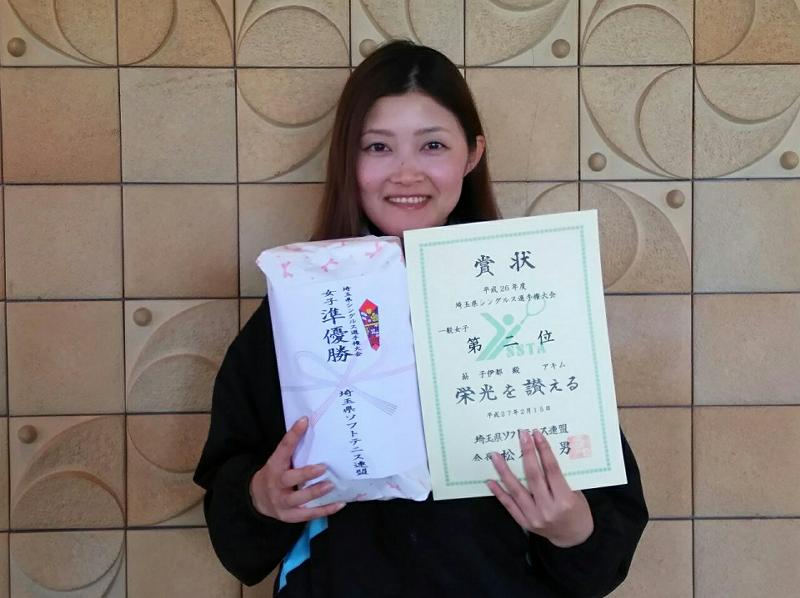 埼玉県シングルス選手権大会
女子準優勝
埼玉県ソフトテニス連盟
賞状
平成26年度
埼玉県シングルス選手権大会
一般女子
第二位
SSTA
子伊都 殿 アキム
栄光を讃える
平成27年2月15日
埼玉県ソフトテニス連盟
会長 松 男